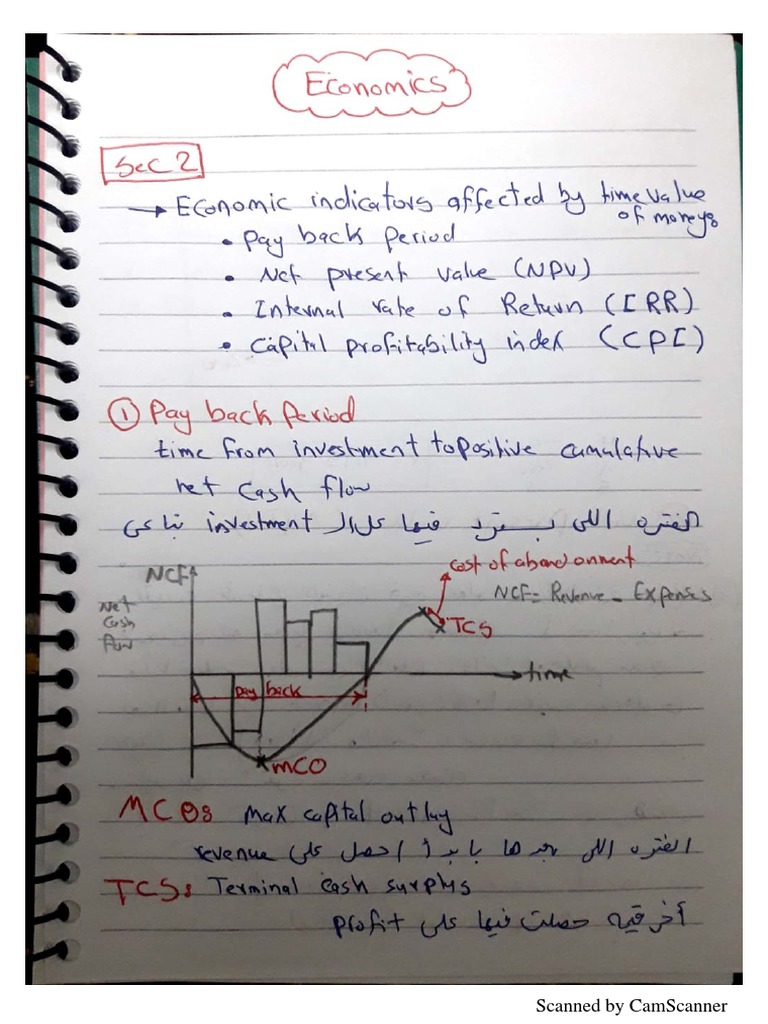 Economics
Sec 2
→ Economic indicators affected by time value
of money:
• Pay back period
• Net present value (NPV)
• Internal rate of Return (IRR)
• Capital profitability index (CPI)
① Pay back Period
time from investment to positive cumulative
net cash flow
الفتره اللى بسترد فيها كل ال investment بتاعى
cost of abandonment
NCF
NCF = Revenue - Expenses
Net
Cash
flow
TCS
time
pay back
MCO
MCO: Max capital outlay
الفتره اللى بعدها بابدأ احصل على revenue
TCS: Terminal cash surplus
أخر قيمه حصلت فيها على profit
Scanned by CamScanner